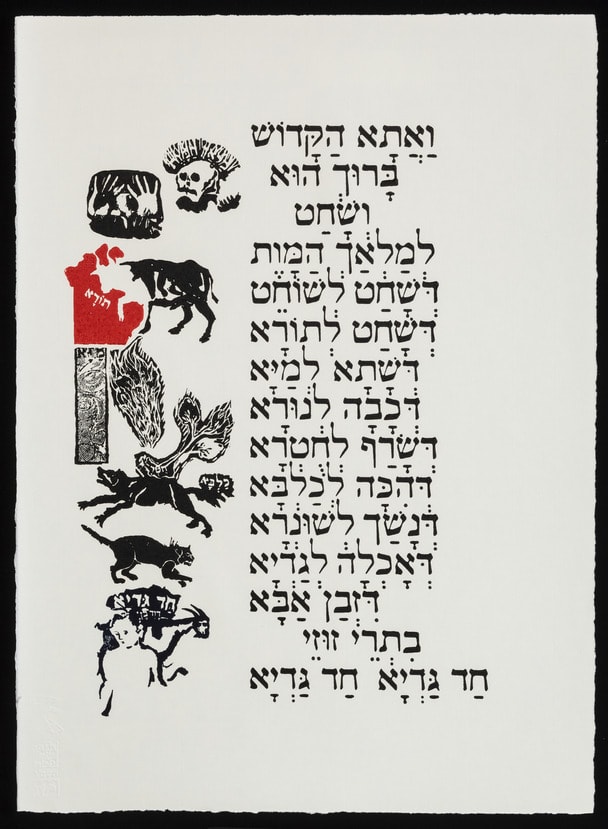 וַאֲתָא הַקָּדוֹשׁ
בָּרוּךְ הוּא
וְשָׁחַט
לְמַלְאַךְ הַמָּוֶת
דְּשָׁחַט לְשׁוֹחֵט
דְּשָׁחַט לְתוֹרָא
דְּשָׁתָא לְמַיָּא
דְּכָבָה לְנוּרָא
דְּשָׂרַף לְחֻטְרָא
דְּהִכָּה לְכַלְבָּא
דְּנָשַׁךְ לְשׁוּנְרָא
דְּאָכְלָה לְגַדְיָא
דִּזְבַן אַבָּא
בִּתְרֵי זוּזֵי
חַד גַּדְיָא חַד גַּדְיָא
תורא
חד גדיא